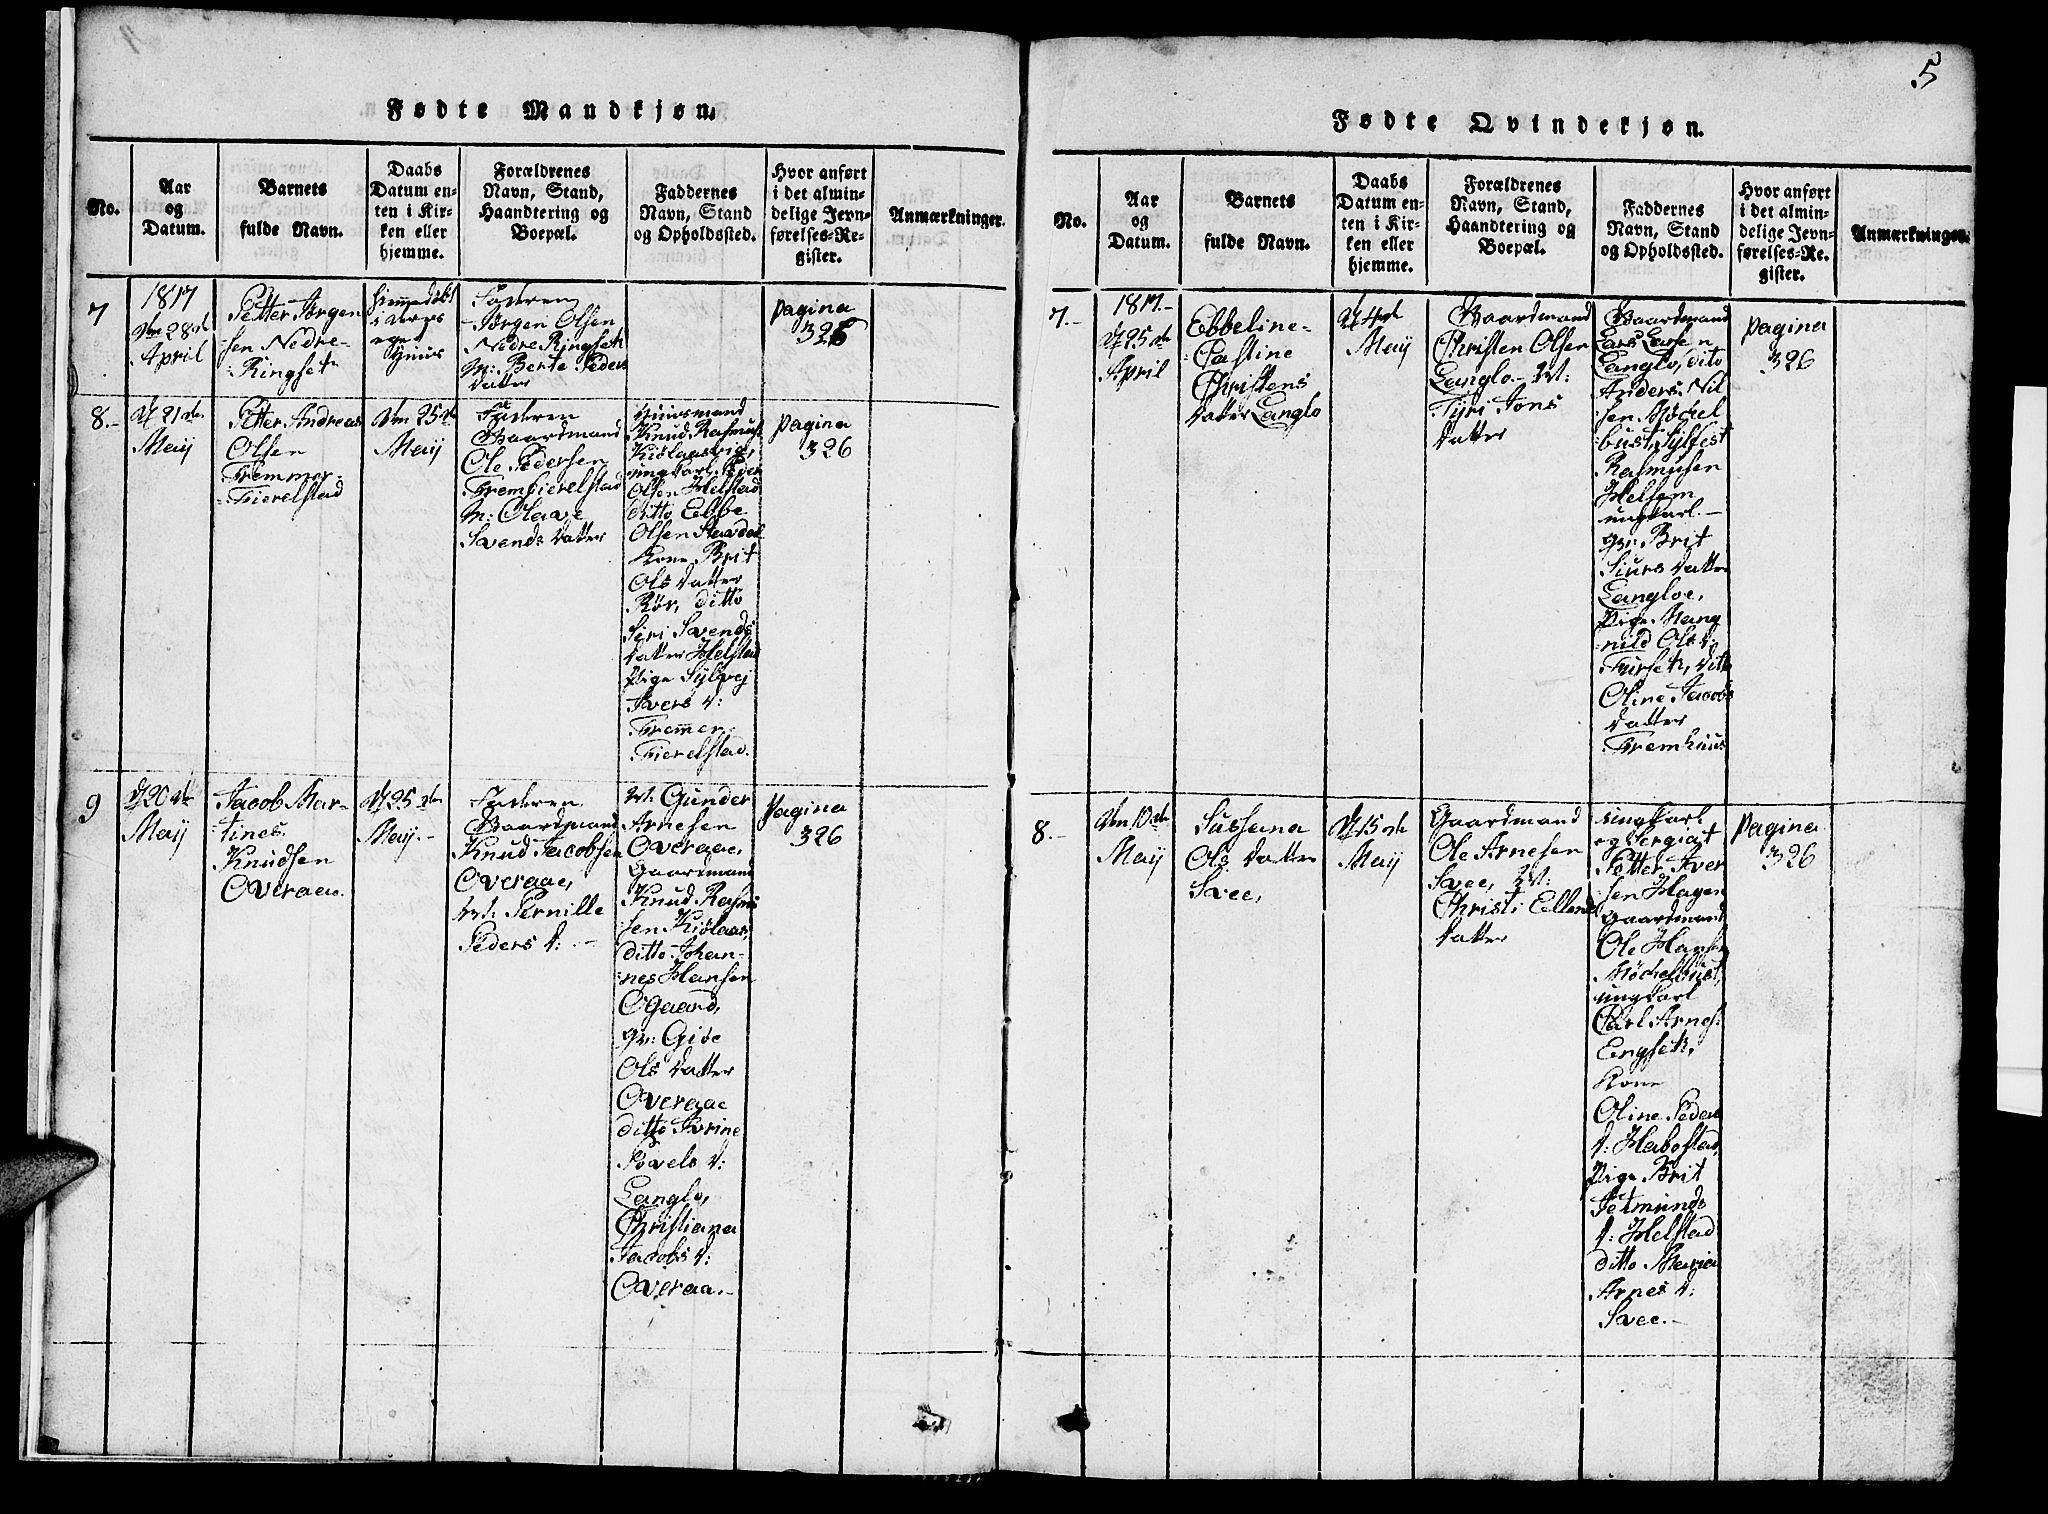 5
Fødte Mandkjøn.
No.
Aar
og
Datum.
Barnets
fulde Navn.
Daabs
Datum en-
ten i Kir-
ken eller
hjemme.
Forældrenes
Navn, Stand,
Haandtering og
Boepæl.
Faddernes
Navn, Stand
og Opholdssted.
Hvor anført
i det almin-
delige Jevn-
førelses-Re-
gister.
Anmærkninger.
7
1817
den 28de
April
Petter Jørgen
sen Nedre-
Ringseth
hiemmedøbt
i deres
eget
Huus
Faderen
Jørgen Olsen
Nedre Ringseth
M: Berte Peders
datter
pagina
326
8.-
d 21de
Maij
Petter Andreas
Olsen
Fremmer-
Fierelstad
den 25de
Maij
Faderen
Gaardmand
Ole Pedersen
Fremfierelstad
M: Olave
Svends datter
Huusmand
Knud Rasmus
ungkarl Peder
Olsen Helstad
ditto Ebbe
Olsen Stavdal
Kone Brit
Ols datter
Rör, ditto
Siri Svends
datter Helstad
Pige Sylvej
Ivers d:
Fremmer
Fierelstad.
pagina
326
9
d 20de
Maij
Jacob Mar-
tines
Knudsen
Overaae.
d 25de
Maij.-
Faderen
Gaardmand
Knud Jacobsen
Overaae,
M. Pernille
Peders d: -
Gunder
Arnesen
Overaae,
Gaardmand
Knud Rasmus
sen Kiölaas,
ditto Johan-
nes Hansen
Ogaard,
gv: Giöe
Ols datter
Overaae
ditto Ivrine
Povels d:
Langlo,
Christiana
Jacobs d:
Overaa.-
pagina
326
Fødte Qvindekjøn.
No.
Aar
og
Datum.
Barnets
fulde Navn.
Daabs
Datum en-
ten i Kir-
ken eller
hjemme.
Forældrenes
Navn, Stand,
Haandtering og
Boepæl.
Faddernes
Navn, Stand
og Opholdssted.
Hvor anført
i det almin-
delige Jevn-
førelses-Re-
gister.
Anmærkninger.
7.-
1817.-
d 25de
April
Ebbeline-
Castine
Christens
datter Langlo
d 4de
Maij
Gaardmand
Christen Olsen
Langlo- M:
Tyri Jons
datter
Gaardmand
Lars Larsen
Langlo, dito
Anders Nil
sen Möchel
bust, Sylfest
Rasmusen
Helsem
ungkarl.-
gv: Brit
Siurs datter
Langloe,
Pige Mang
nild Ols d:
Furseth, ditto
Oline Jacobs
datter
Fremhuus
pagina
326
8.-
den 10de
Maij
Susana
Ols datter
Svee,
d 15de
Maij
Gaardmand
Ole Arnesen
Svee, M:
Christi Ellends
datter
ungkarl
og Sergiat
Petter Iver
sen Hagen
Gaardmand
Ole Hansen
Möchelbust,
ungkarl
Carl Arnes:
Engseth,
Kone
Oline Peders
d: Habostad,
Pige Brit
Jetmunds
d: Helstad
ditto Maria
Arnes d:
Svee.-
pagina
326